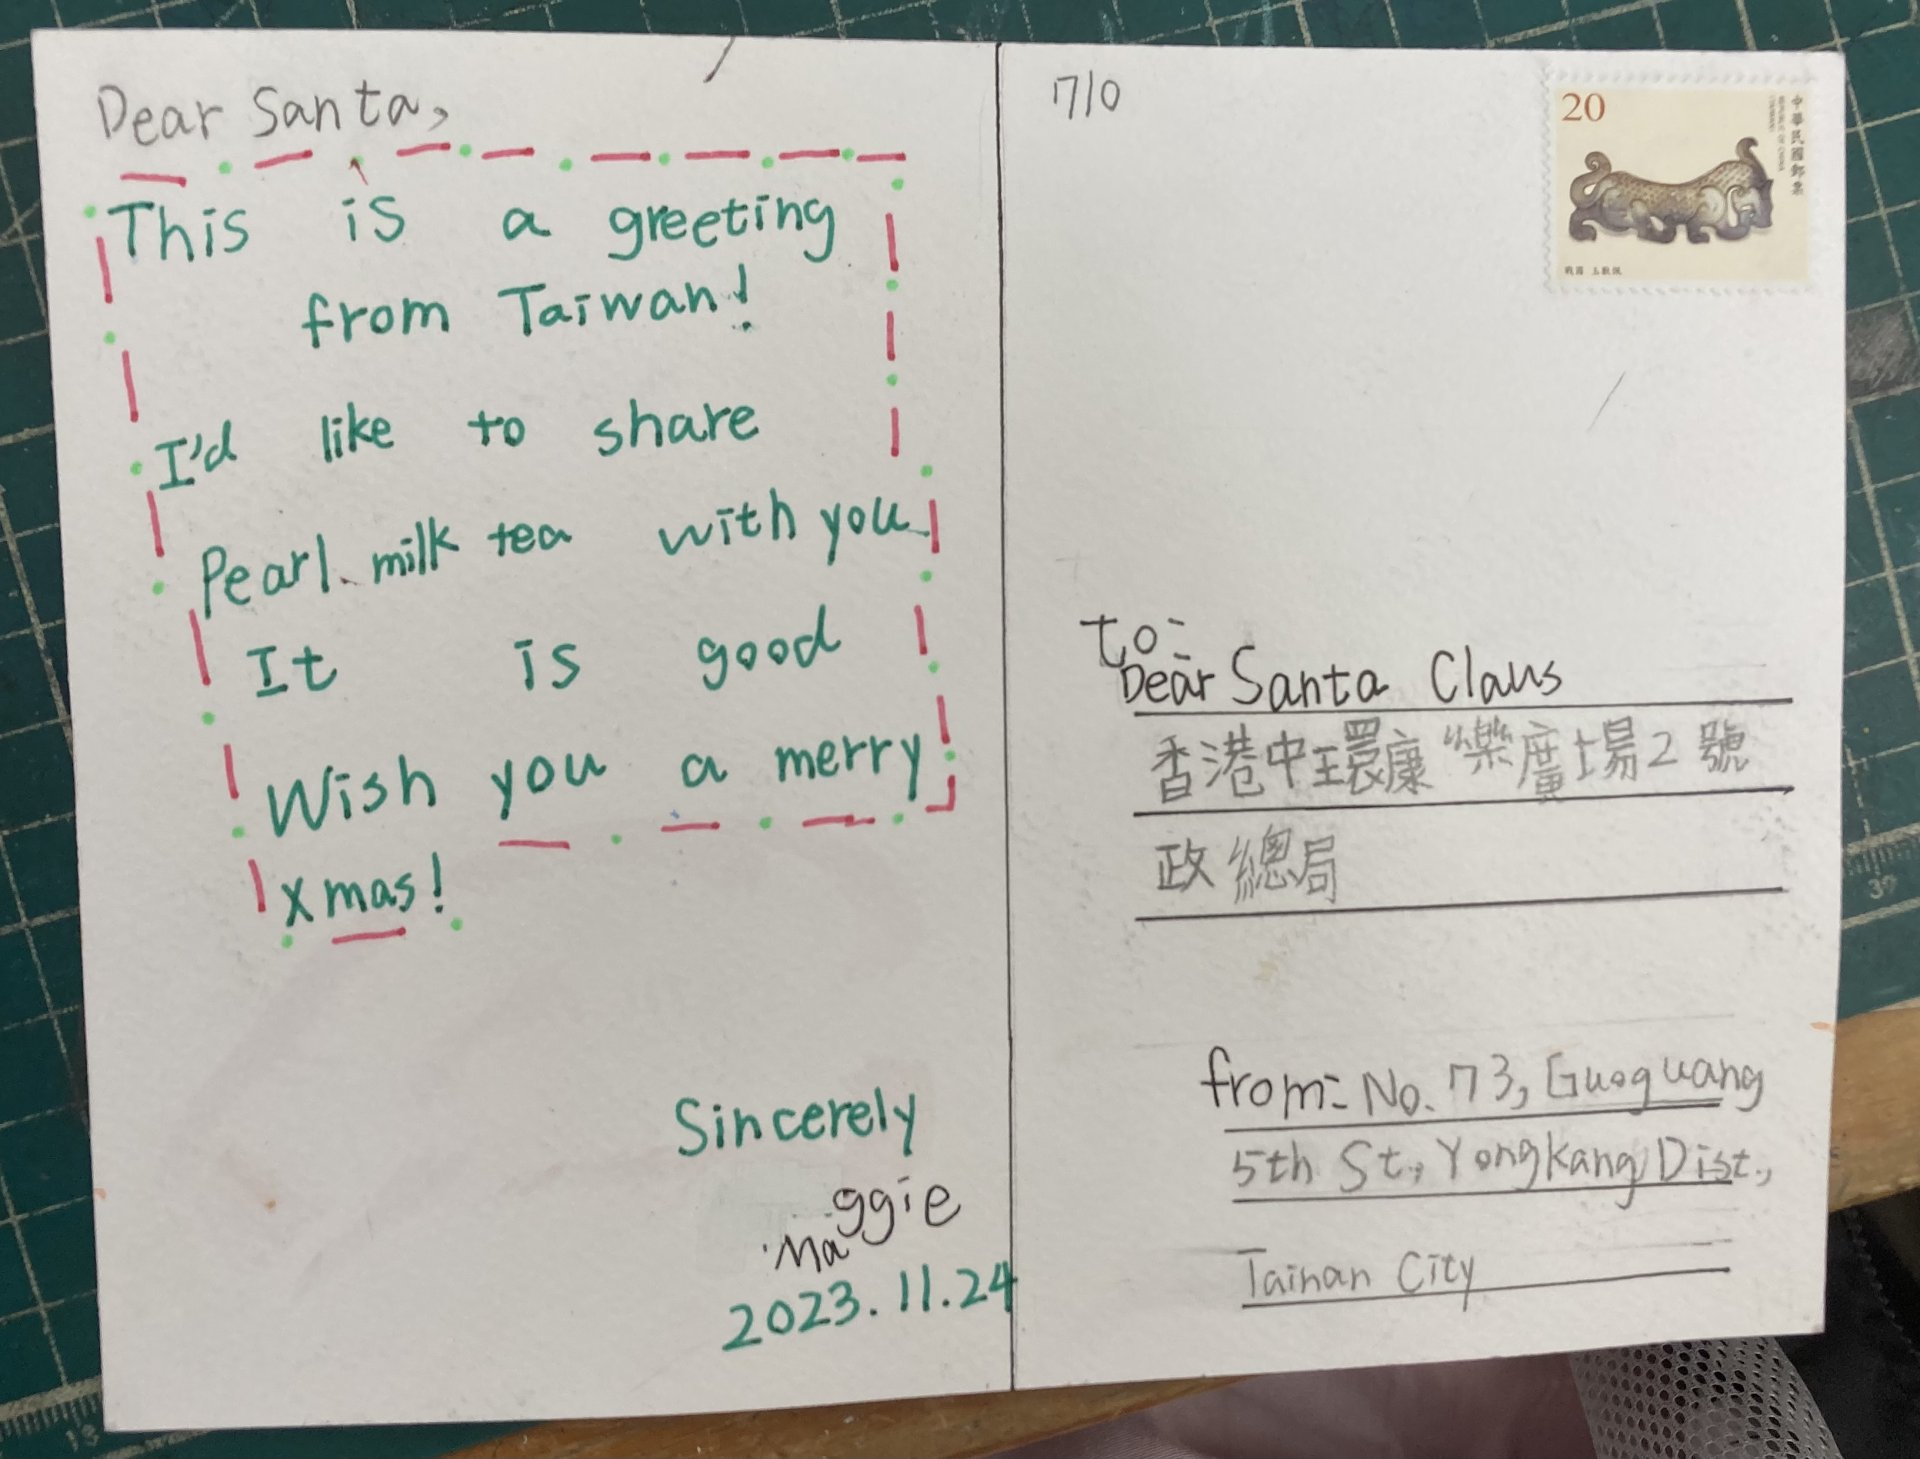 Dear Santa,
This is a greeting
from Taiwan!
I'd like to share
Pearl milk tea with you
It is good
Wish you a merry
Xmas!
Sincerely
Maggie
2023.11.24
710
20
中華民國郵票
REPUBLIC OF CHINA
戰國 玉獸佩
to:
Dear Santa Claus
香港中環康樂廣場2號
政總局
from: No. 73, Guoguang
5th St., Yongkang Dist.,
Tainan City